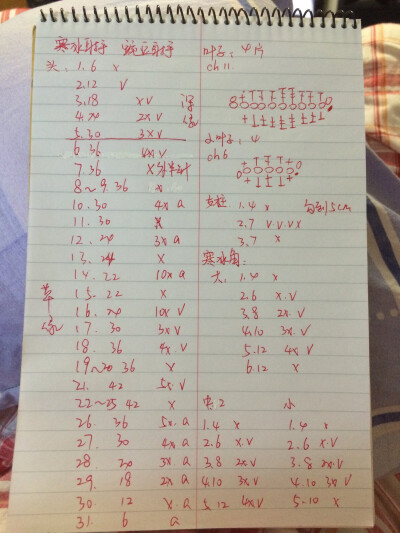 寒冰射手 豌豆射手
头:1.6 X
2.12 V
3.18 XV 深
4.24 2XV 绿
5.30 3XV
6.36 4XV
7.36 X外半针
8~9 36 X
10.30 4X a
11.30 X
12.24 3X a
13.24 X
14.22 10X a
草 15.22 X
16.24 10X V
绿 17.30 3X V
18.36 4X.V
19~20 36 X
21. 42 5X V
22~25 42 X
26. 36 5X.a
27. 30 4X a
28. 24 3X.a
29. 18 2X a
30. 12 X.a
31. 6 a
叶子:4片
ch 11.
小叶子:4
ch 6
支柱.1.4 X 勾到5cm
2.7 V.V.V X
3.7 X
寒冰角:
大.1.4 X
2.6 X.V
3.8 2X.V
4.10 3X.V
5.12 4X V
6.12 X
中2 小
1.4 X 1.4 X
2.6 X.V 2.6 X.V
3.8 2X V 3.8 2X.V
4.10 3X V 4.10 3X V
5.12 4X V 5.10 X